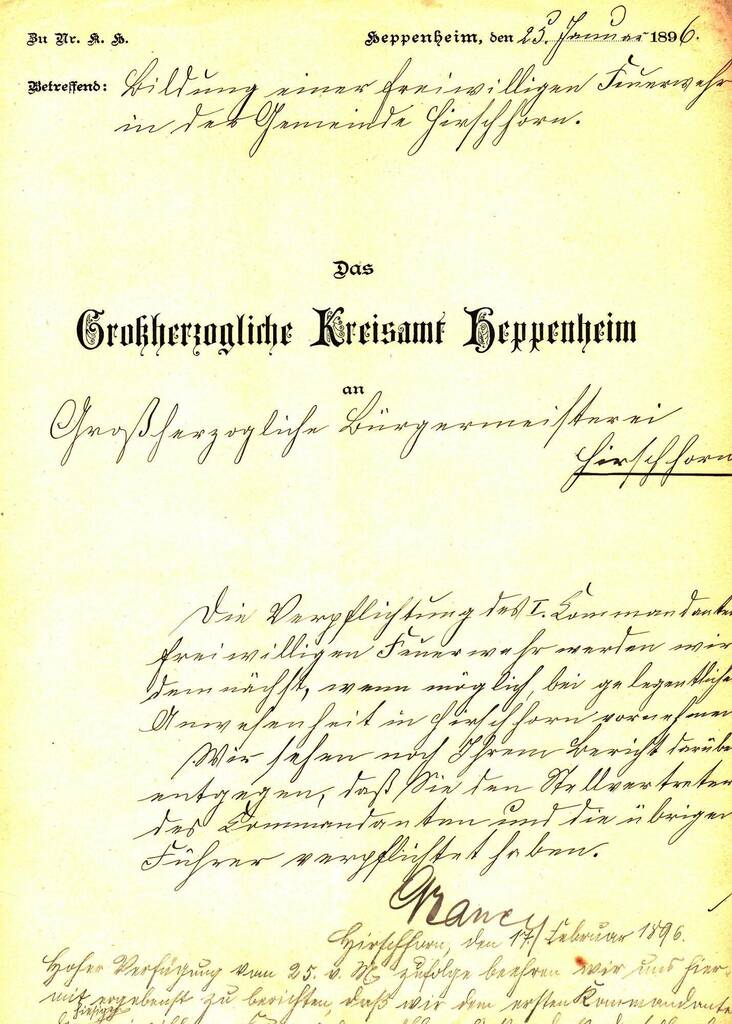 Zu Nr. K. H.
Heppenheim, den 25. Januar 1896.
Betreffend: Bildung einer freiwilligen Feuerwehr
in der Gemeinde Hirschhorn.
Das
Großherzogliche Kreisamt Heppenheim
an
Großherzogliche Bürgermeisterei
Hirschhorn
Die Verpflichtung des I. Commandanten
freiwilligen Feuerwehr werden wir
demnächst, wenn möglich, bei gelegentliche
Anwesenheit in Hirschhorn vornehmen
Wir sehen noch Ihrem Bericht darübe
entgegen, daß Sie den Stellvertreter
des Commandanten und die übrigen
Führer verpflichtet haben.
Hirschhorn, den 17/ Februar 1896.
Hoher Verfügung vom 25. v. M. zufolge beehren wir uns hier-
mit ergebenst zu berichten, daß wir dem ersten Kommandante